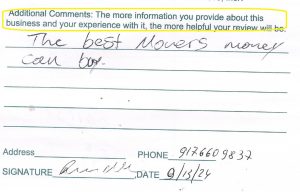 Additional Comments: The more information you provide about this
business and your experience with it, the more helpful your review will be.
The best Movers money
can buy.
Address
PHONE 9176609837
SIGNATURE DATE /13/24